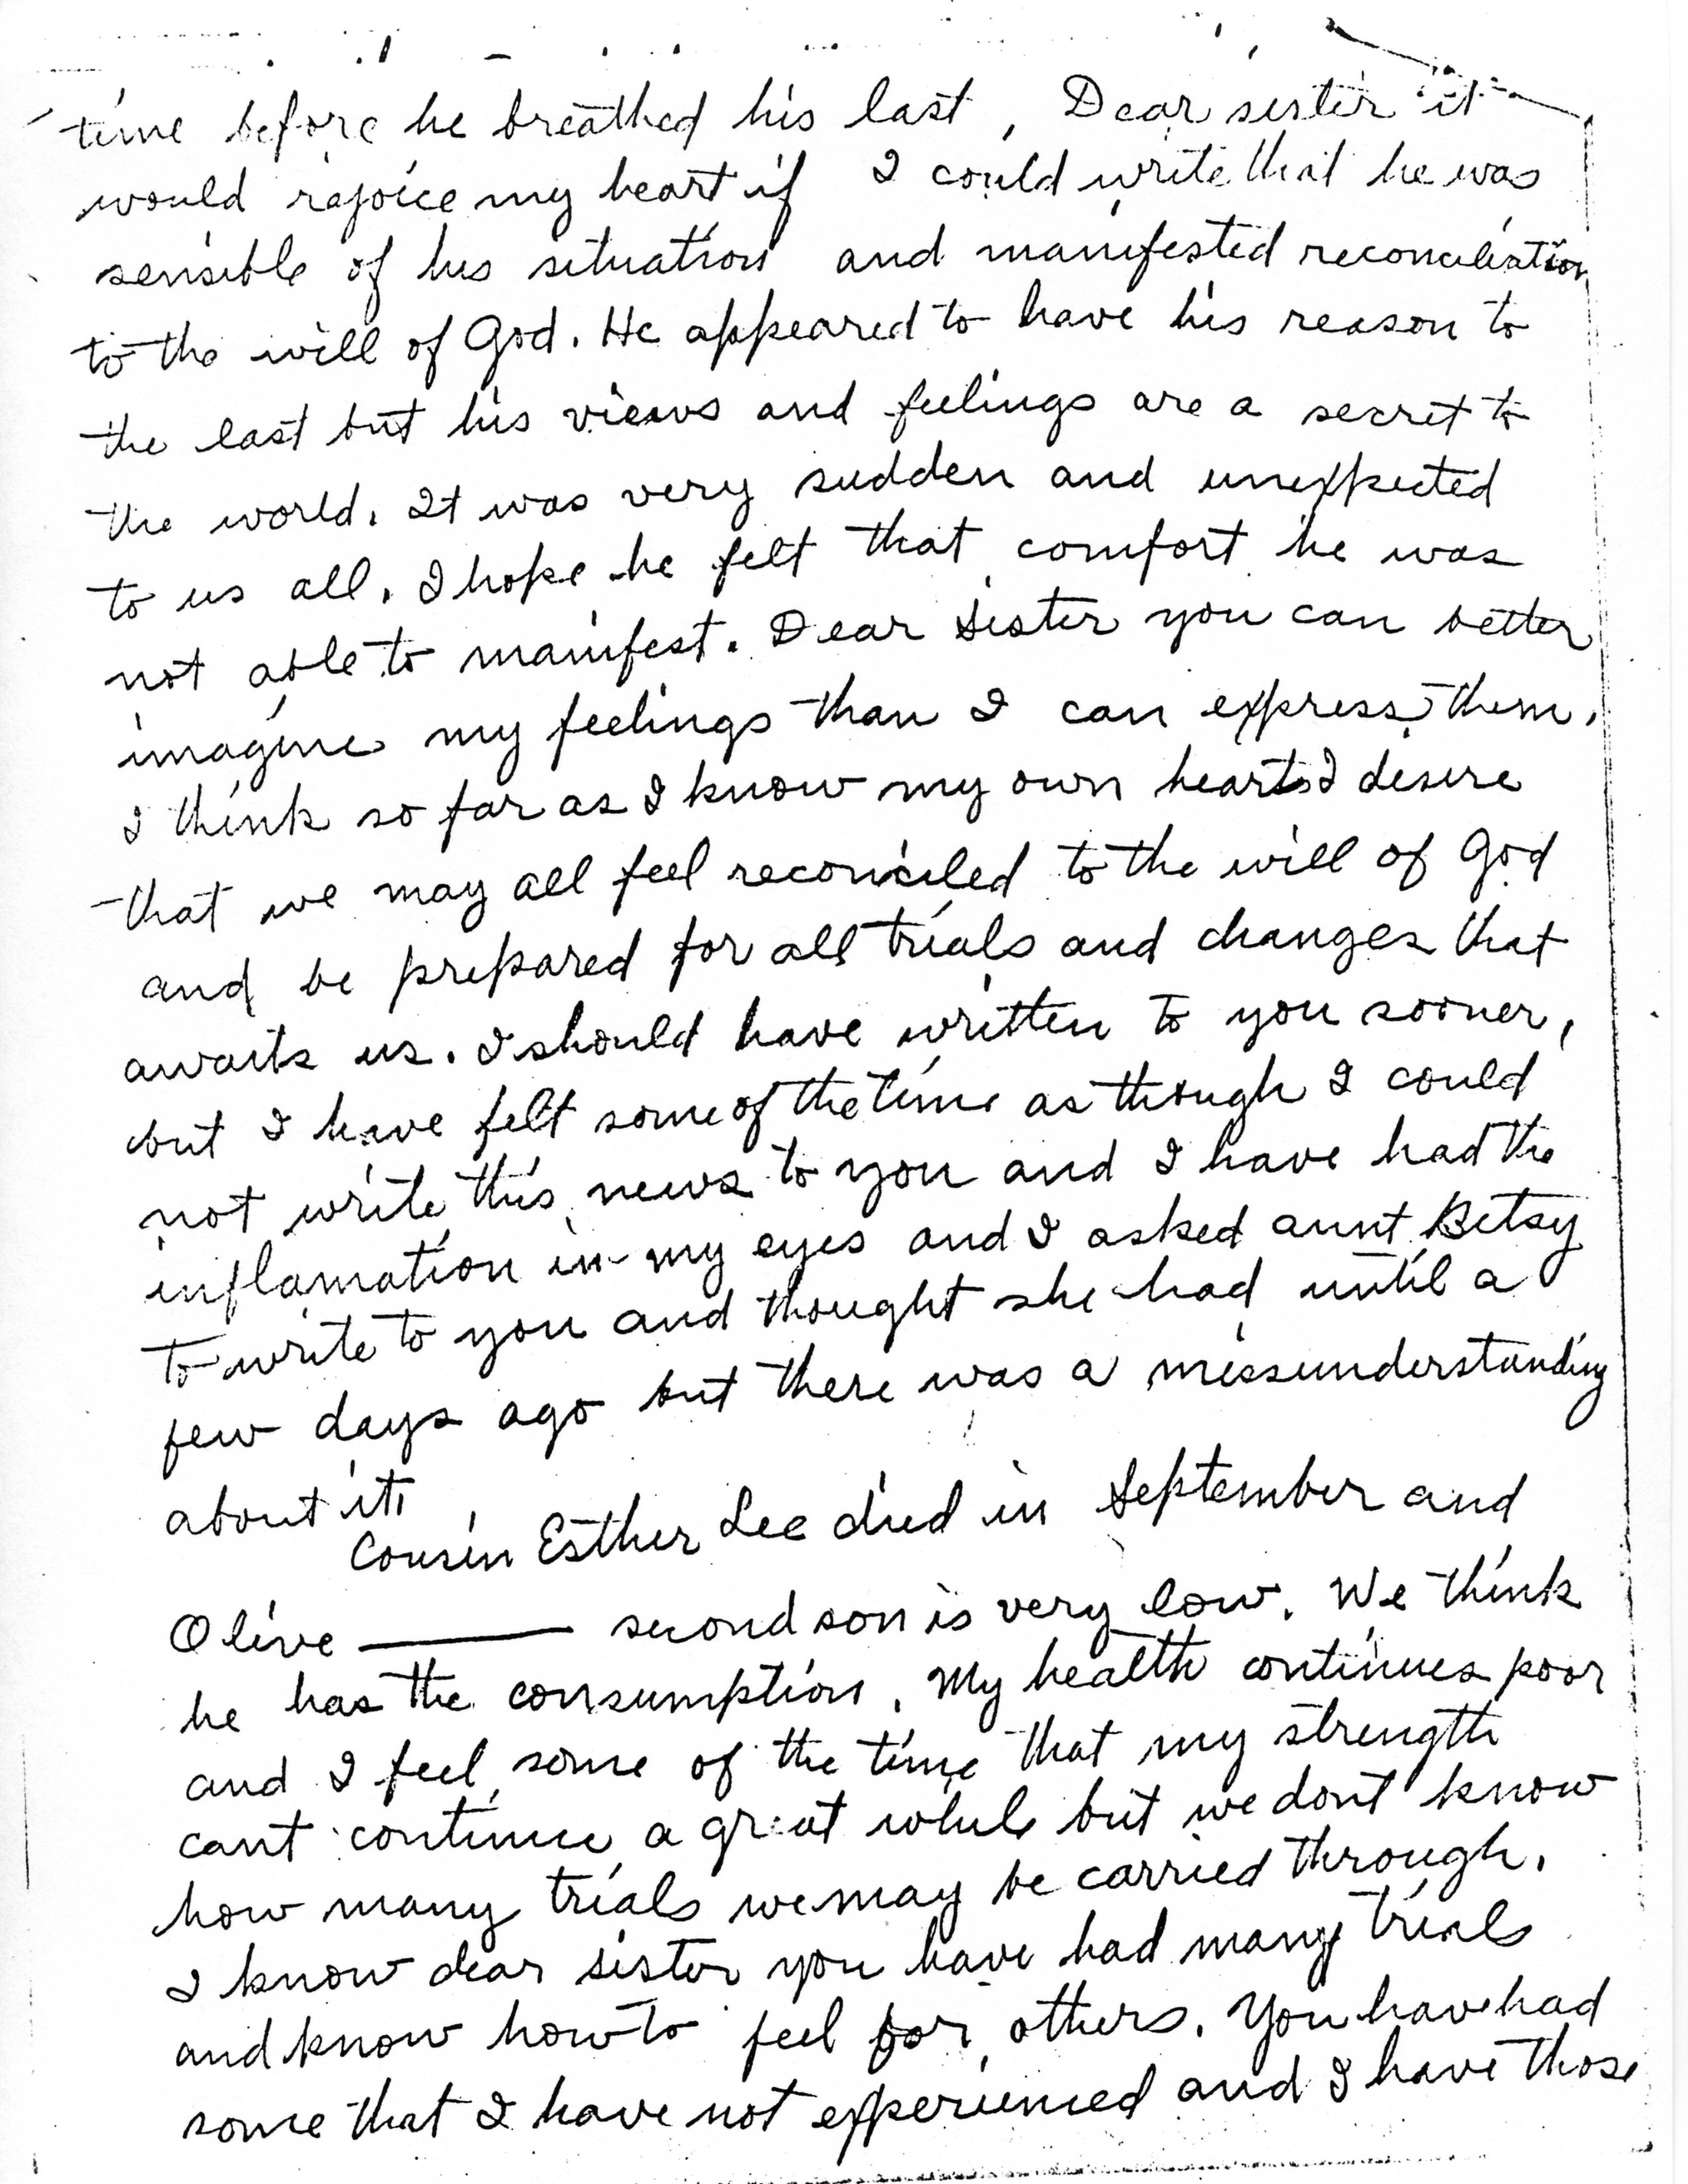 time before he breathed his last, Dear sister it
would rejoice my heart if I could write that he was
sensible of his situation and manifested reconciliation
to the will of God. He appeared to have his reason to
the last but his views and feelings are a secret to
the world. It was very sudden and unexpected
to us all. I hope he felt that comfort he was
not able to manifest. Dear Sister you can better
imagine my feelings than I can express them.
I think so far as I know my own heart I desire
that we may all feel reconciled to the will of God
and be prepared for all trials and changes that
awaits us. I should have written to you sooner,
but I have felt some of the time as though I could
not write this news to you and I have had the
inflamation in my eyes and I asked aunt Betsy
to write to you and thought she had until a
few days ago but there was a missunderstanding
about it.
Cousin Esther Lee died in September and
Olive ——— second son is very low. We think
he has the consumption. My health continues poor
and I feel some of the time that my strength
cant continue a great while but we dont know
how many trials we may be carried through.
I know dear sister you have had many trials
and know how to feel for others. You have had
some that I have not experienced and I have those